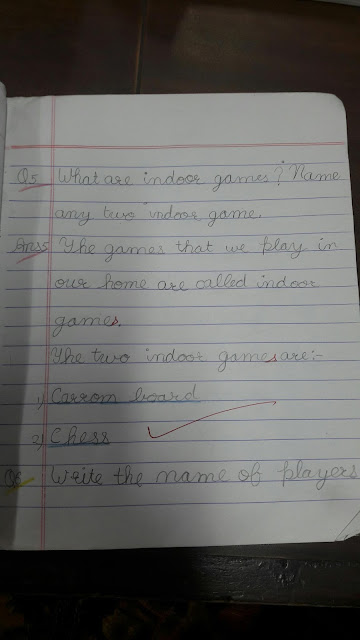 Q5 What are indoor games? Name
any two indoor game.
Ans5 The games that we play in
our home are called indoor
games.
The two indoor games are:-
1) Carrom board
2) Chess
Q6 Write the name of players